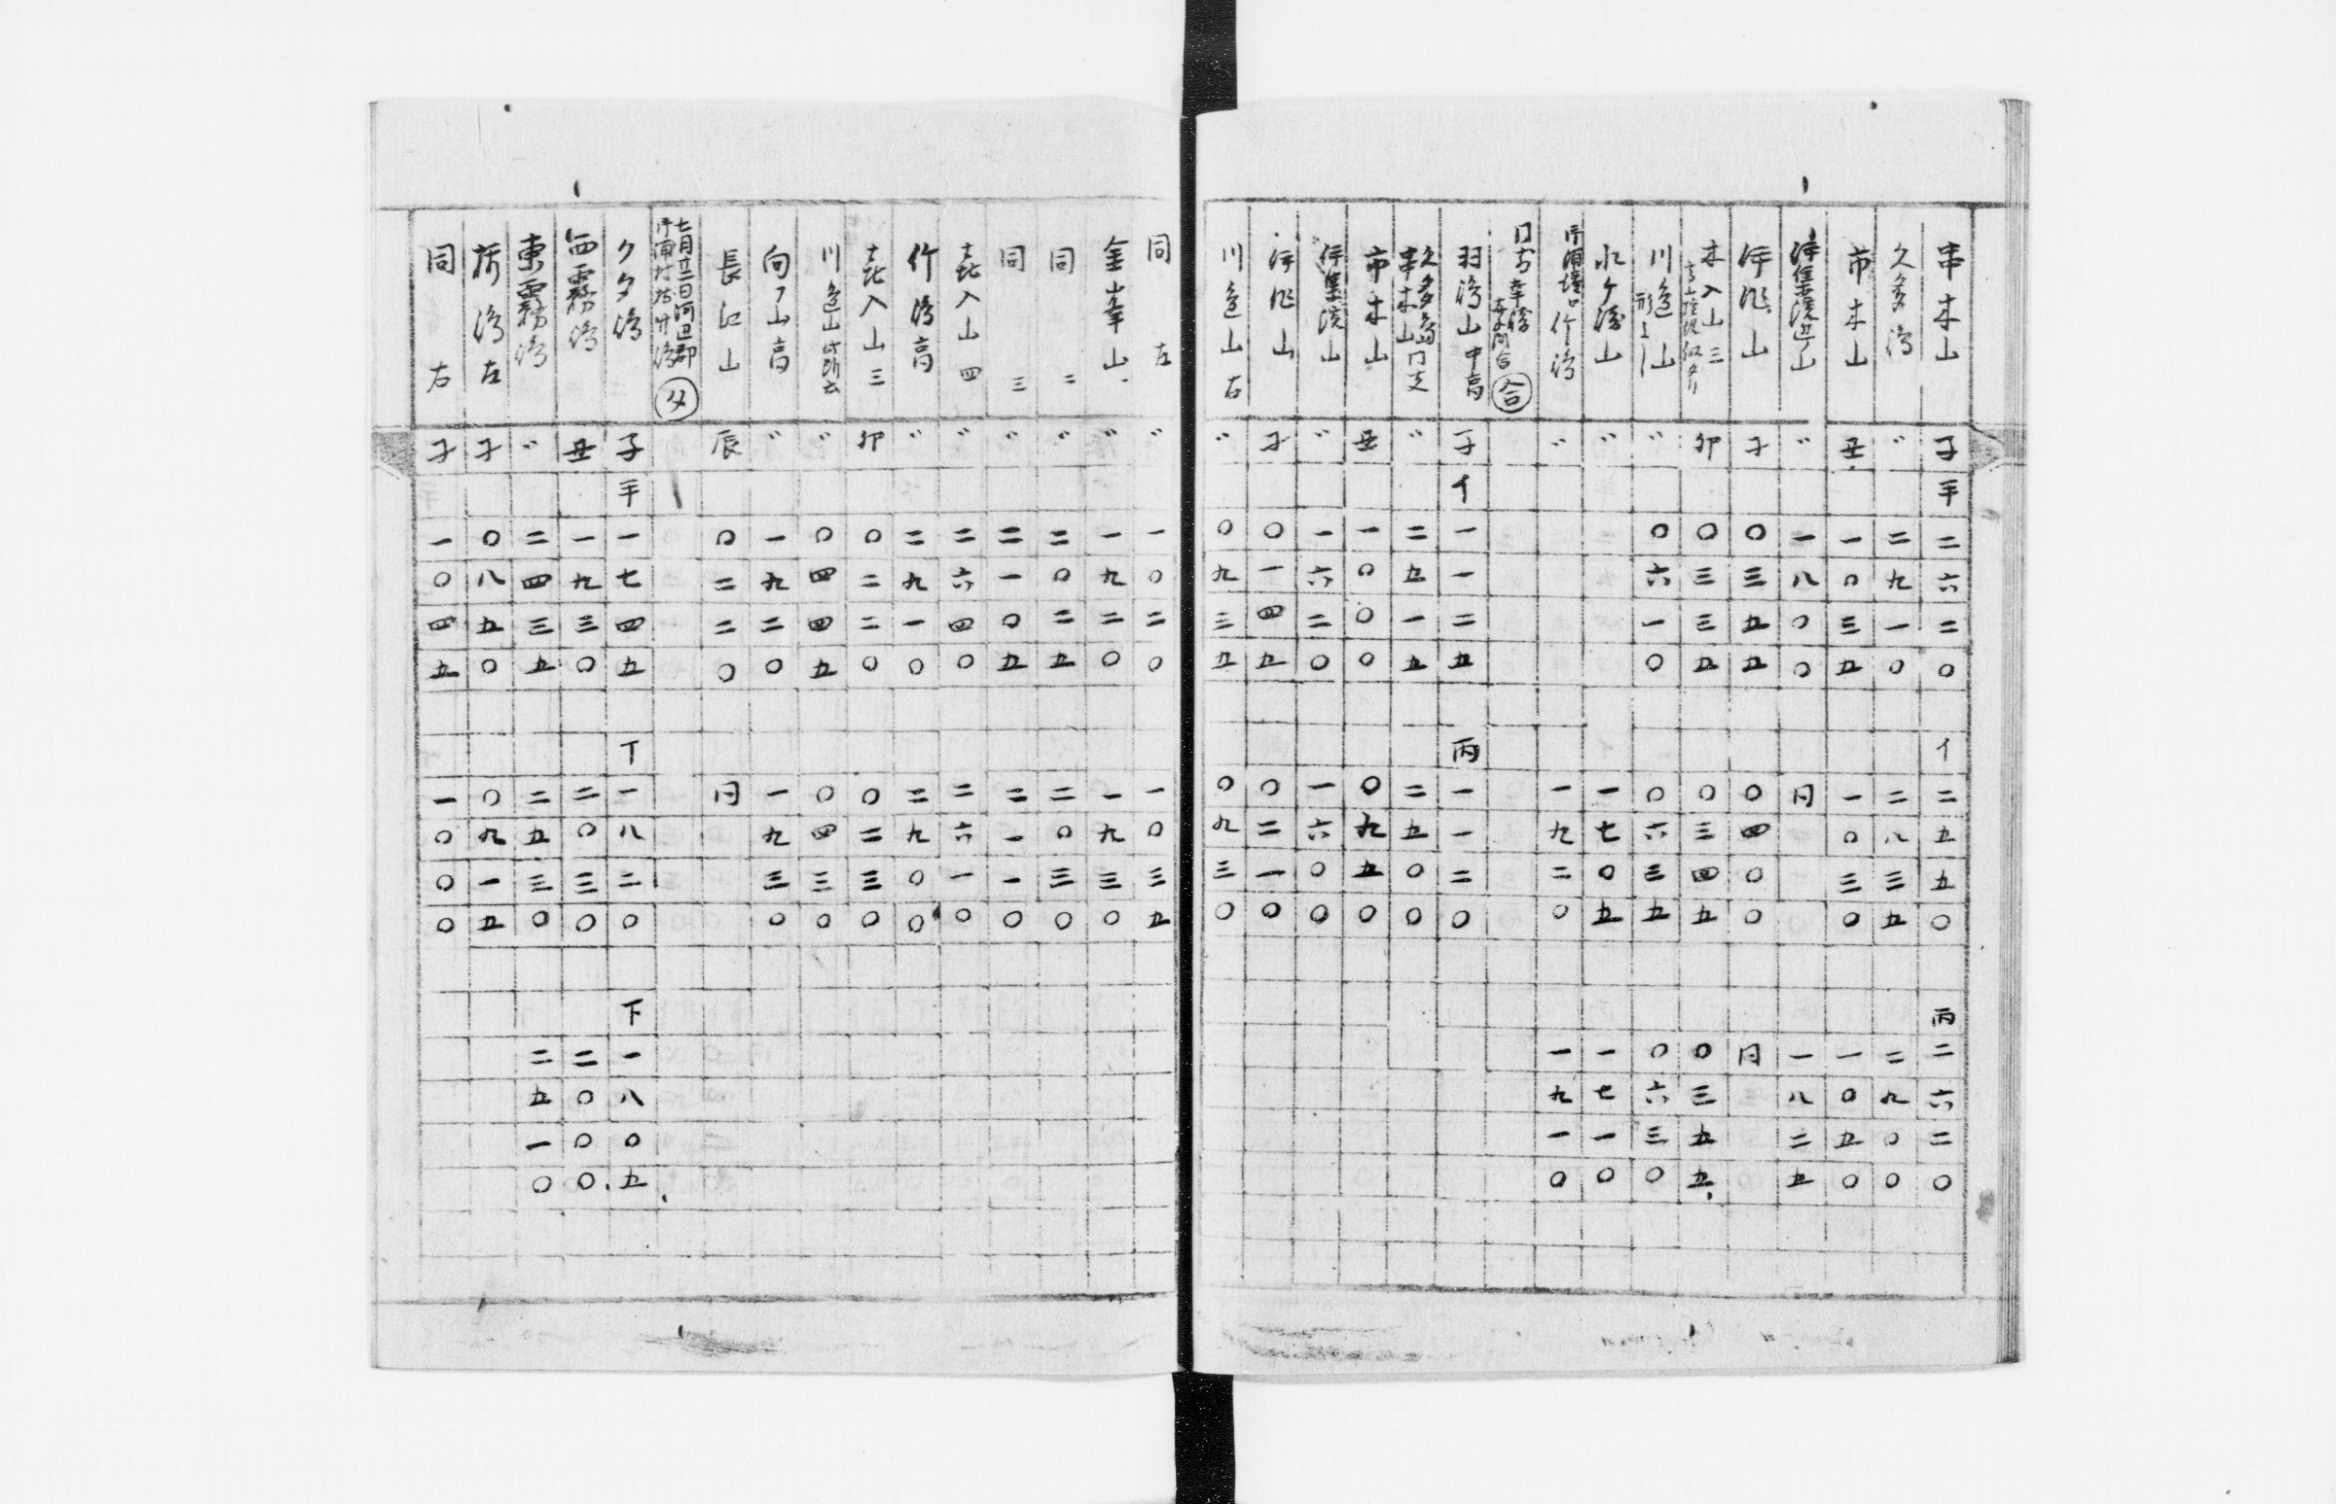 串木山 子 手 二六二〇 イ 二五五〇 丙 二六二〇
久多島 〃 二九一〇 二八三五 二九〇〇
市木山 丑 一〇三五 一〇三〇 一〇五〇
伊集院 山 〃 一八〇〇 同 一八二五
伊作山 子 〇三五五 〇四〇〇 同
木入山 三 卯 〇三三五 〇三四五 〇三五五
川辺山 〃 〇六一〇 〇六三五 〇六三〇
水ケ 山 〃 一七〇五 一七一〇
竹島 〃 一九二〇 一九一〇
合
羽島山 中高 子 イ 一一二五 丙 一一二〇
久多島 串木山 〃 二五一五 二五〇〇
市木山 丑 一〇〇〇 〇九五〇
伊集院山 〃 一六二〇 一六〇〇
伊作山 子 〇一四五 〇二一〇
川辺山 右 〃 〇九三五 〇九三〇
同 左 〃 一〇二〇 一〇三五
金峯山 〃 一九二〇 一九三〇
同 二 〃 二〇二五 二〇三〇
同 三 〃 二一〇五 二一一〇
喜入山 四 〃 二六四〇 二六一〇
竹島高 〃 二九一〇 二九〇〇
喜入山 三 卯 〇二二〇 〇二三〇
川辺山 〃 〇四四五 〇四三〇
向フ山高 〃 一九二〇 一九三〇
長江山 辰 〇二二〇 同
七月廿二日河辺郡
片浦村 竹島
夕タ島 子 手 一七四五 丁 一八二〇 下 一八〇五
西霧島 丑 一九三〇 二〇三〇 二〇〇〇
東霧島 〃 二四三五 二五三〇 二五一〇
島 左 子 〇八五〇 〇九一五
同 右 子 一〇四五 一〇〇〇